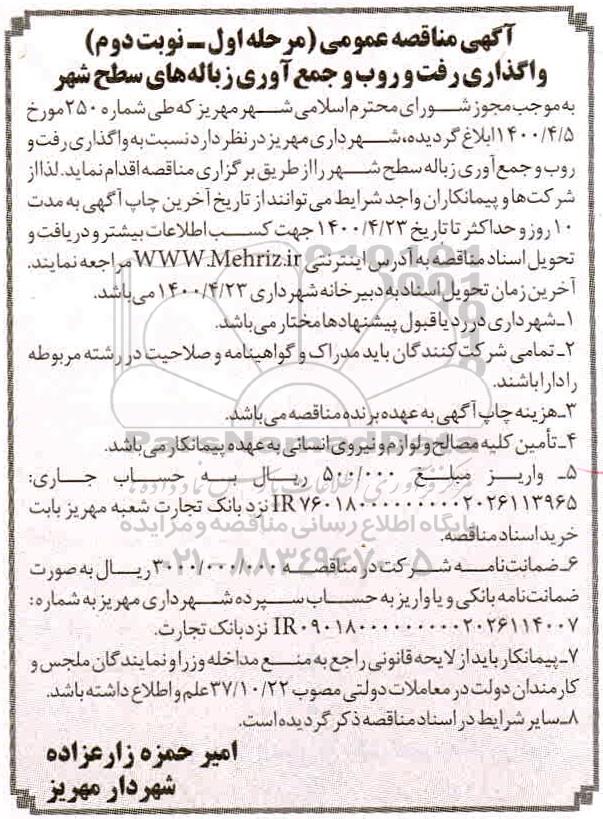 آگهی مناقصه عمومی (مرحله اول ـ نوبت دوم)
واگذاری رفت و روب و جمع آوری زباله‌های سطح شهر
به موجب مجوز شورای محترم اسلامی شهر مهریز که طی شماره ۲۵۰ مورخ
۱۴۰۰/۴/۵ ابلاغ گردیده، شهرداری مهریز در نظر دارد نسبت به واگذاری رفت و
روب و جمع آوری زباله سطح شهر را از طریق برگزاری مناقصه اقدام نماید. لذا از
شرکت‌ها و پیمانکاران واجد شرایط می‌توانند از تاریخ آخرین چاپ آگهی به مدت
۱۰ روز و حداکثر تا تاریخ ۱۴۰۰/۴/۲۳ جهت کسب اطلاعات بیشتر و دریافت و
تحویل اسناد مناقصه به آدرس اینترنتی WWW.Mehriz.ir مراجعه نمایند.
آخرین زمان تحویل اسناد به دبیرخانه شهرداری ۱۴۰۰/۴/۲۳ می‌باشد.
۱ـ شهرداری در رد یا قبول پیشنهادها مختار می‌باشد.
۲ـ تمامی شرکت کنندگان باید مدارک و گواهینامه و صلاحیت در رشته مربوطه
را دارا باشند.
۳ـ هزینه چاپ آگهی به عهده برنده مناقصه می‌باشد.
۴ـ تأمین کلیه مصالح و لوازم و نیروی انسانی به عهده پیمانکار می‌باشد.
۵ـ واریز مبلغ ۵۰۰/۰۰۰ ریال به حساب جاری:
IR۷۶۰۱۸۰۰۰۰۰۰۰۰۰۰۲۰۲۶۱۱۳۹۶۵ نزد بانک تجارت شعبه مهریز بابت
خرید اسناد مناقصه.
۶ـ ضمانت‌نامه شرکت در مناقصه ۳۰۰۰/۰۰۰/۰۰۰ ریال به صورت
ضمانت‌نامه بانکی و یا واریز به حساب سپرده شهرداری مهریز به شماره:
IR۰۹۰۱۸۰۰۰۰۰۰۰۰۰۰۲۰۲۶۱۱۴۰۰۷ نزد بانک تجارت.
۷ـ پیمانکار باید از لایحه قانونی راجع به منع مداخله وزرا و نمایندگان ملجس و
کارمندان دولت در معاملات دولتی مصوب ۳۷/۱۰/۲۲ علم و اطلاع داشته باشد.
۸ـ سایر شرایط در اسناد مناقصه ذکر گردیده است.
امیر حمزه زارعزاده
شهردار مهریز
ParsNamadData
پایگاه اطلاع رسانی مناقصه و مزایده
۰۲۱-۸۸۳۴۹۶۷۰-۵